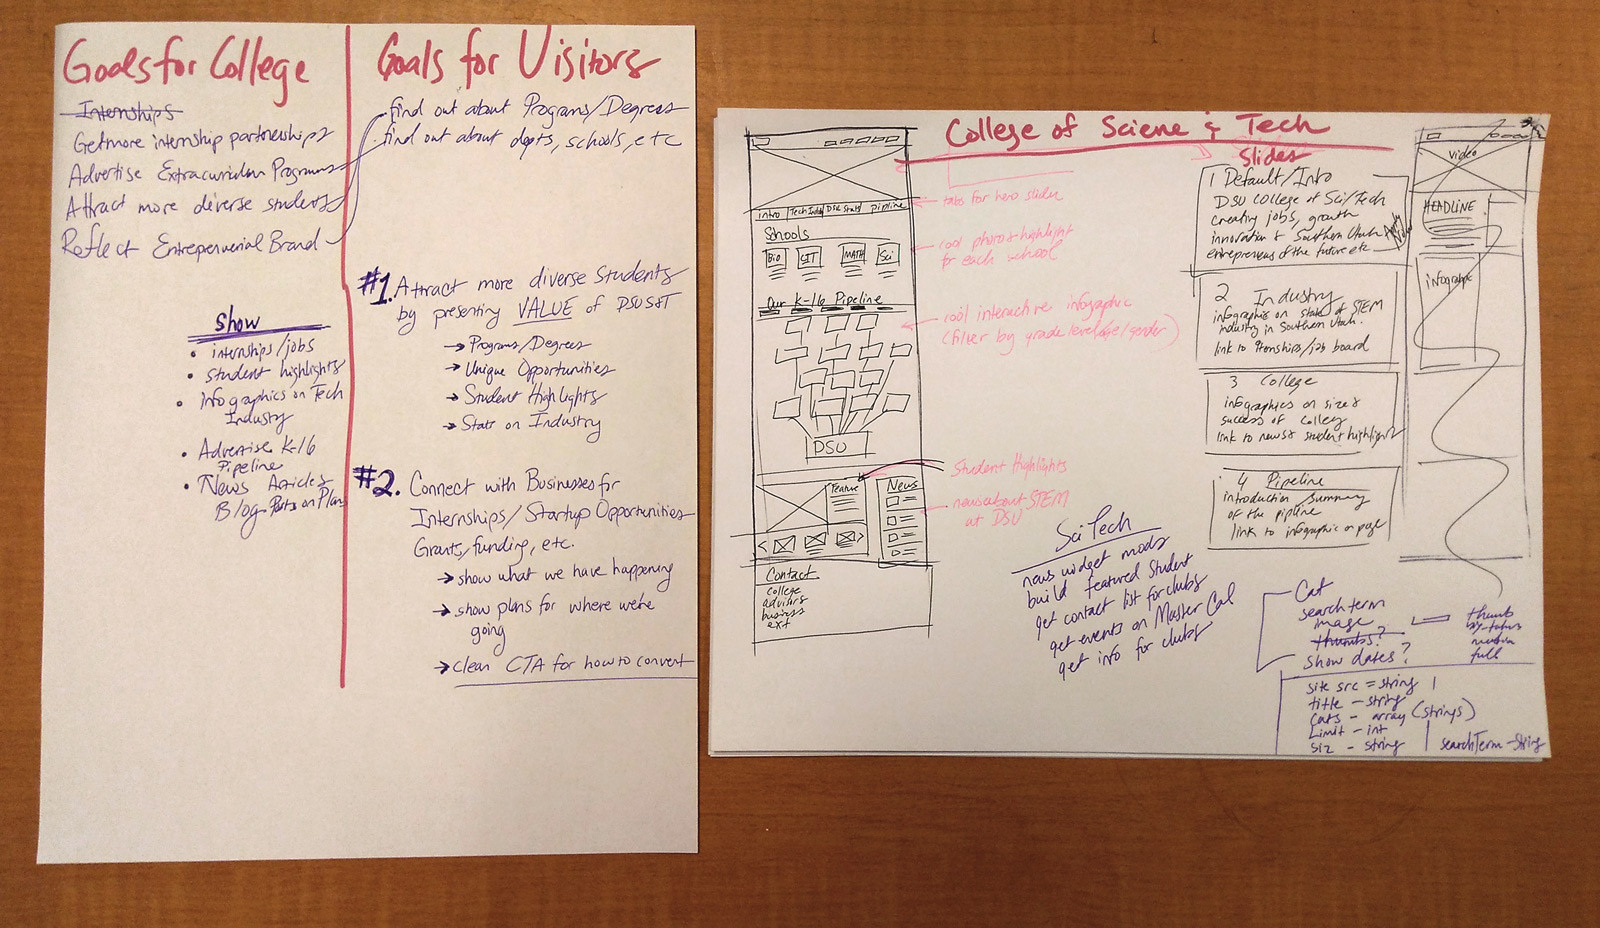 Goals for College
Internships
Get more internship partnerships
Advertise Extracurricular Programs
Attract more diverse students
Reflect Entrepenuerial Brand
Show
• internships/jobs
• student highlights
• infographics on Tech
Industry
• Advertise K-16
Pipeline
• News Articles
Blog Posts on Plans
Goals for Visitors
find out about Programs/Degrees
find out about depts, schools, etc
#1. Attract more diverse Students
by presenting VALUE of DSU S&T
→ Programs/Degrees
→ Unique Opportunities
→ Student Highlights
→ Stats on Industry
#2. Connect with Businesses for
Internships/Startup Opportunities
Grants, funding, etc.
→ show what we have happening
→ show plans for where we're
going
→ clean CTA for how to convert
College of Sciene & Tech
intro Tech Indus DSU Stats pipline
Schools
Bio CIT MATH Sci
Our K-16 Pipeline
DSU
Feature
News
Contact
college
advisors
business
ext
tabs for hero slider
cool photos highlight
for each school
cool interactive infographic
(filter by grade level/age/gender)
Student Highlights
news about STEM
at DSU
Slides
1 Default/Intro
DSU College of Sci/Tech
creating jobs, growth
innovation & Southern Utah
entrepreneurs of the future etc
2 Industry
infographic on state of STEM
industry in Southern Utah.
link to iternships/job board
3 College
infographics on size &
success of College
link to news & student highlights
4 Pipeline
introduction/summary
of the pipeline
link to infographic on page
Video
HEADLINE
infographic
SciTech
news widget mods
build featured Student
get contact list for clubs
get events on Master Cal
get info for clubs
Cat
search term
image
thumbs?
show dates?
thumb
full
site src = string
title - string
cats - array (strings)
Limit - int
siz - string
searchTerm - String